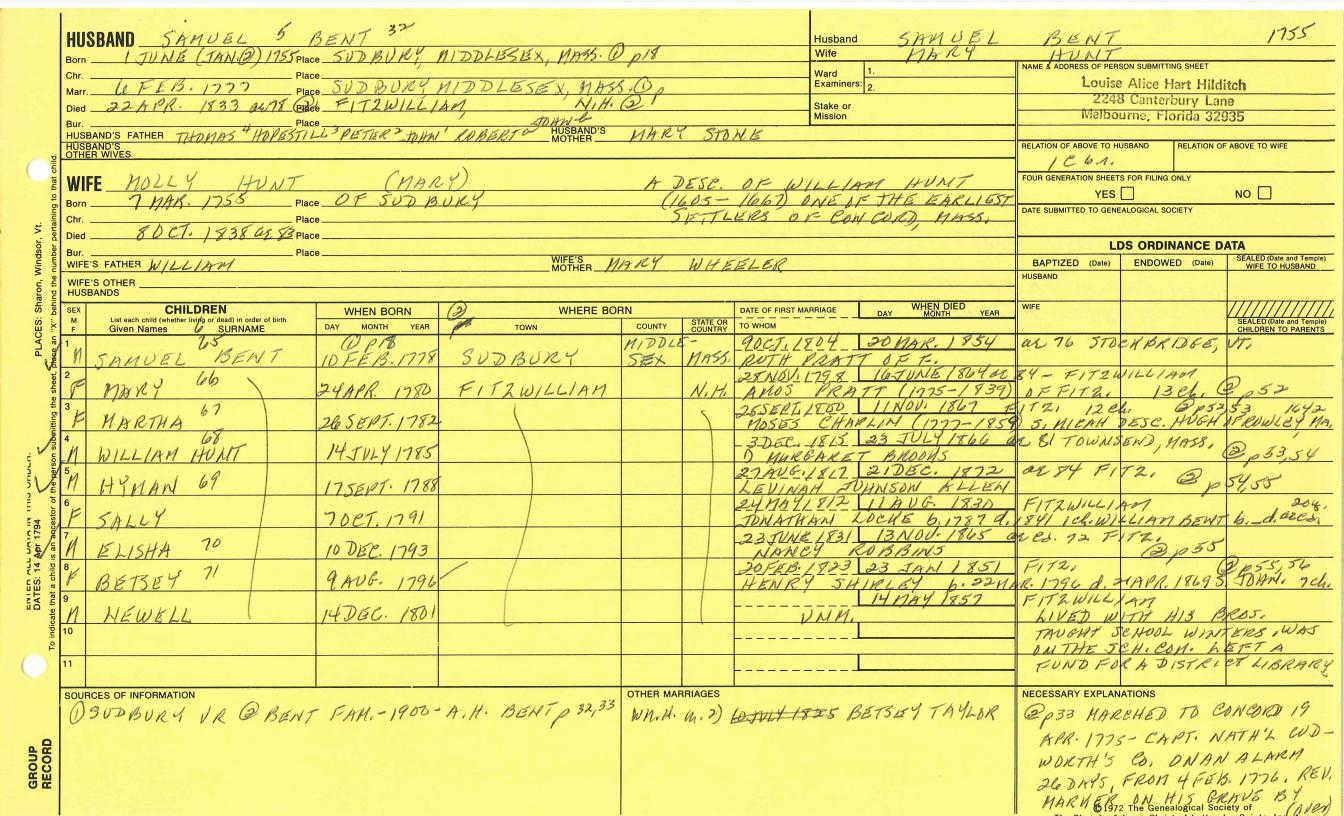 HUSBAND SAMUEL 5 BENT 32
Born 1 JUNE (JAN②) 1755 Place SUDBURY, MIDDLESEX, MASS. ① p18
Chr. Place
Marr. 6 FEB. 1777 Place SUDBURY MIDDLESEX, MASS. ① p
Died 22 APR. 1833 ae 78 ② Place FITZWILLIAM, N.H. ②
Bur. Place
HUSBAND'S FATHER THOMAS 4 HOPESTILL 3 PETER 2 JOHN 1 ROBERT a JOHN b HUSBAND'S MOTHER MARY STONE
HUSBAND'S OTHER WIVES
WIFE MOLLY HUNT (MARY) A DESC. OF WILLIAM HUNT
Born 7 MAR. 1755 Place OF SUDBURY (1605-1667) ONE OF THE EARLIEST
Chr. Place SETTLERS OF CONCORD, MASS.
Died 8 OCT. 1838 ae 83 Place
Bur. Place
WIFE'S FATHER WILLIAM WIFE'S MOTHER MARY WHEELER
WIFE'S OTHER HUSBANDS
Husband SAMUEL BENT 1755
Wife MARY HUNT
Ward Examiners: 1. 2.
Stake or Mission
NAME & ADDRESS OF PERSON SUBMITTING SHEET
Louise Alice Hart Hilditch
2248 Canterbury Lane
Melbourne, Florida 32935
RELATION OF ABOVE TO HUSBAND RELATION OF ABOVE TO WIFE
1C 6r.
FOUR GENERATION SHEETS FOR FILING ONLY
YES NO
DATE SUBMITTED TO GENEALOGICAL SOCIETY
LDS ORDINANCE DATA
BAPTIZED (Date) ENDOWED (Date) SEALED (Date and Temple) WIFE TO HUSBAND
HUSBAND
WIFE
SEALED (Date and Temple) CHILDREN TO PARENTS
SEX M F CHILDREN WHEN BORN ② WHERE BORN DATE OF FIRST MARRIAGE WHEN DIED
List each child (whether living or dead) in order of birth
Given Names 6 SURNAME DAY MONTH YEAR TOWN COUNTY STATE OR COUNTRY TO WHOM DAY MONTH YEAR
1 65 ① p18 MIDDLE- 9 OCT. 1804 20 MAR. 1854 ae 76 STOCKBRIDGE, VT.
M SAMUEL BENT 10 FEB. 1778 SUDBURY SEX MASS. RUTH PRATT OF F.
2 66 28 NOV. 1798 16 JUNE 1864 ae 84 - FITZWILLIAM
F MARY 24 APR. 1780 FITZWILLIAM N.H. AMOS PRATT (1775-1839) OF FITZ. 13 ch. ② p52
3 67 25 SEPT. 1800 11 NOV. 1867 FITZ. 12 ch. ② p52,53 1642
F MARTHA 26 SEPT. 1782 MOSES CHAPLIN (1777-1859) S. MICAH DESC. HUGH of ROWLEY MA.
4 68 3 DEC. 1815 23 JULY 1866 ae 81 TOWNSEND, MASS.
M WILLIAM HUNT 14 JULY 1785 D MARGARET BROOKS ② p53,54
5 27 AUG. 1817 21 DEC. 1872 ae 84 FITZ.
M HYMAN 69 17 SEPT. 1788 LEVINAH JOHNSON ALLEN ② p54,55
6 24 MAY 1812 11 AUG. 1830 FITZWILLIAM
F SALLY 7 OCT. 1791 JONATHAN LOCKE b. 1787 d. 1841 1 ch. WILLIAM BENT b. d.
7 70 23 JUNE 1831 13 NOV. 1865 72 FITZ.
M ELISHA 10 DEC. 1793 NANCY ROBBINS ② p55
8 71 20 FEB. 1823 23 JAN 1851 FITZ. ② p55,56
F BETSEY 9 AUG. 1796 HENRY SHIRLEY b. 22 MAR. 1796 d. 21 APR. 1869 S. JOHN. 7 ch.
9 14 MAY 1857 FITZWILLIAM
M NEWELL 14 DEC. 1801 UNM. LIVED WITH HIS BROS.
10 TAUGHT SCHOOL WINTERS, WAS
ON THE SCH. COM. LEFT A
11 FUND FOR A DISTRICT LIBRARY
SOURCES OF INFORMATION
① SUDBURY VR ② BENT FAM.-1900- A.H. BENT p 32,33
OTHER MARRIAGES
WM.H. m. 2) 10 JULY 1825 BETSEY TAYLOR
NECESSARY EXPLANATIONS
② p33 MARCHED TO CONCORD 19
APR. 1775 - CAPT. NATH'L CUD-
WORTH'S CO. ON AN ALARM
26 DAYS, FROM 4 FEB. 1776. REV.
MARKER ON HIS GRAVE BY
(over)
©1972 The Genealogical Society of
PLACES: Sharon, Windsor, Vt.
ENTER ALL DATA IN THIS ORDER:
DATES: 14 Apr 1794
To indicate that a child is an ancestor of the person submitting the sheet, place an "X" behind the number pertaining to that child.
GROUP RECORD